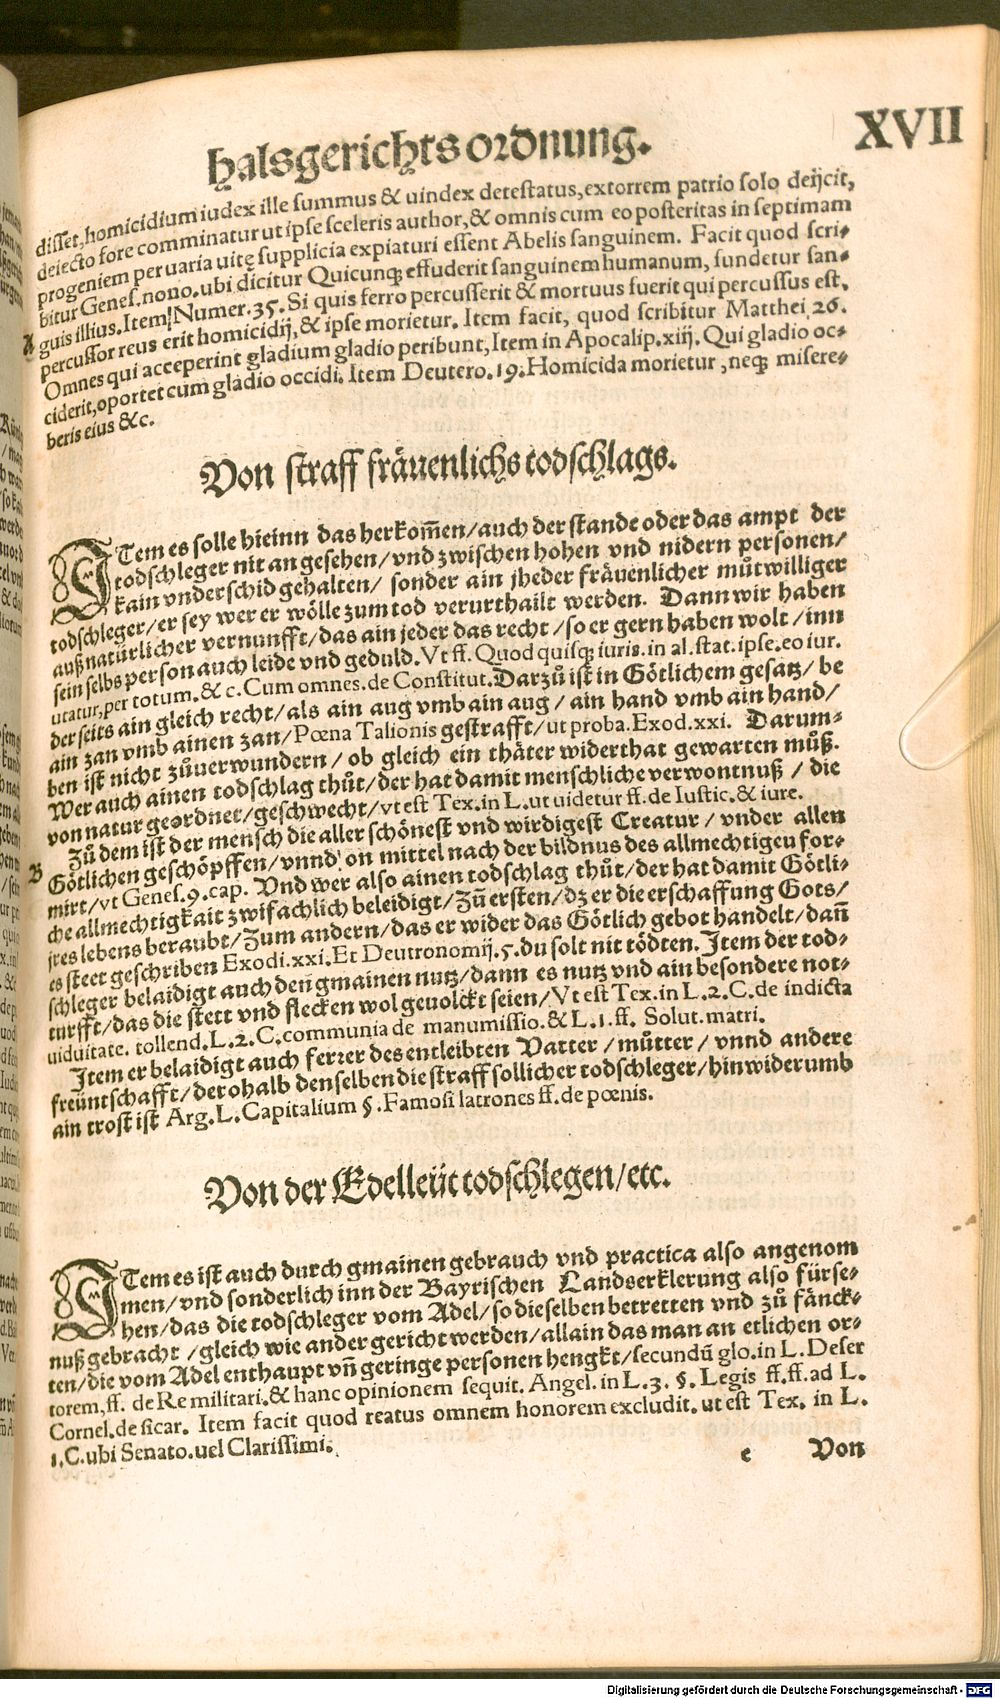 halsgerichtsordnung. XVII
disset, homicidium iudex ille summus & uindex detestatus, extorrem patrio solo deijcit,
deiecto fore comminatur ut ipse sceleris author, & omnis cum eo posteritas in septimam
progeniem per uaria uitę supplicia expiaturi essent Abelis sanguinem. Facit quod scri-
bitur Genes. nono. ubi dicitur Quicunq; effuderit sanguinem humanum, fundetur san-
guis illius. Item Numer. 35. Si quis ferro percusserit & mortuus fuerit qui percussus est.
A
percussor reus erit homicidij, & ipse morietur. Item facit, quod scribitur Matthei 26.
Omnes qui acceperint gladium gladio peribunt, Item in Apocalip. xiij. Qui gladio oc-
ciderit, oportet cum gladio occidi. Item Deutero. 19. Homicida morietur, neq; misere-
beris eius &c.
Von straff fräuenlichs todschlags.
ITem es solle hieinn das herkom̃en/auch der stande oder das ampt der
todschleger nit angesehen/vnd zwischen hohen vnd nidern personen/
kain vnderschid gehalten/ sonder ain jheder fräuenlicher můtwilliger
todschleger/er sey wer er wölle zum tod verurthailt werden. Dann wir haben
auß natürlicher vernunfft/das ain jeder das recht/so er gern haben wolt/inn
sein selbs person auch leide vnd geduld. Vt ff. Quod quisq; iuris. in al. stat. ipse. eo iur.
utatur, per totum. & c. Cum omnes. de Constitut. Darzů ist in Götlichem gesatz/be
der seits ain gleich recht/als ain aug vmb ain aug/ ain hand vmb ain hand/
ain zan vmb ainen zan/Pœna Talionis gestrafft/ut proba. Exod. xxi. Darum-
ben ist nicht zůuerwundern/ ob gleich ein thäter widerthat gewarten můß.
Wer auch ainen todschlag thůt/der hat damit menschliche verwontnuß/ die
von natur geordnet/geschwecht/vt est Tex. in L. ut uidetur ff. de Iustic. & iure.
Zů dem ist der mensch die aller schönest vnd wirdigest Creatur/ vnder allen
B
Götlichen geschöpffen/vnnd on mittel nach der bildnus des allmechtigeu for-
mirt/vt Genes. 9. cap. Vnd wer also ainen todschlag thůt/der hat damit Götli-
che allmechtigkait zwifachlich beleidigt/Zů ersten/dz er die erschaffung Gots/
jres lebens beraubt/Zum andern/das er wider das Götlich gebot handelt/dañ
es steet geschriben Exodi. xxi. Et Deutronomij. 5. du solt nit tödten. Item der tod-
schleger belaidigt auch deñ gmainen nutz/dann es nutz vnd ain besondere not-
turfft/das die stett vnd flecken wol geuolckt seien/Vt est Tex. in L. 2. C. de indicta
uiduitate. tollend. L. 2. C. communia de manumissio. & L. 1. ff. Solut. matri.
Item er belaidigt auch ferrer des entleibten Vatter/můtter/ vnnd andere
freüntschafft/derohalb denselben die straff sollicher todschleger/hinwiderumb
ain trost ist Arg. L. Capitalium §. Famosi latrones ff. de pœnis.
Von der Edelleüt todschlegen/etc.
ITem es ist auch durch gmainen gebrauch vnd practica also angenom
men/vnd sonderlich inn der Bayrischen Landserklerung also fürse-
hen/das die todschleger vom Adel/so dieselben betretten vnd zů fänck-
nuß gebracht/gleich wie ander gericht werden/allain das man an etlichen or-
ten/die vom Adel enthaupt vñ geringe personen hengkt/secundũ glo. in L. Deser
torem, ff. de Re militari. & hanc opinionem sequit. Angel. in L. 3. §. Legis ff. ff. ad L.
Cornel. de sicar. Item facit quod reatus omnem honorem excludit. ut est Tex. in L.
1. C. ubi Senato. uel Clarissimi.
e Von
Digitalisierung gefördert durch die Deutsche Forschungsgemeinschaft - DFG